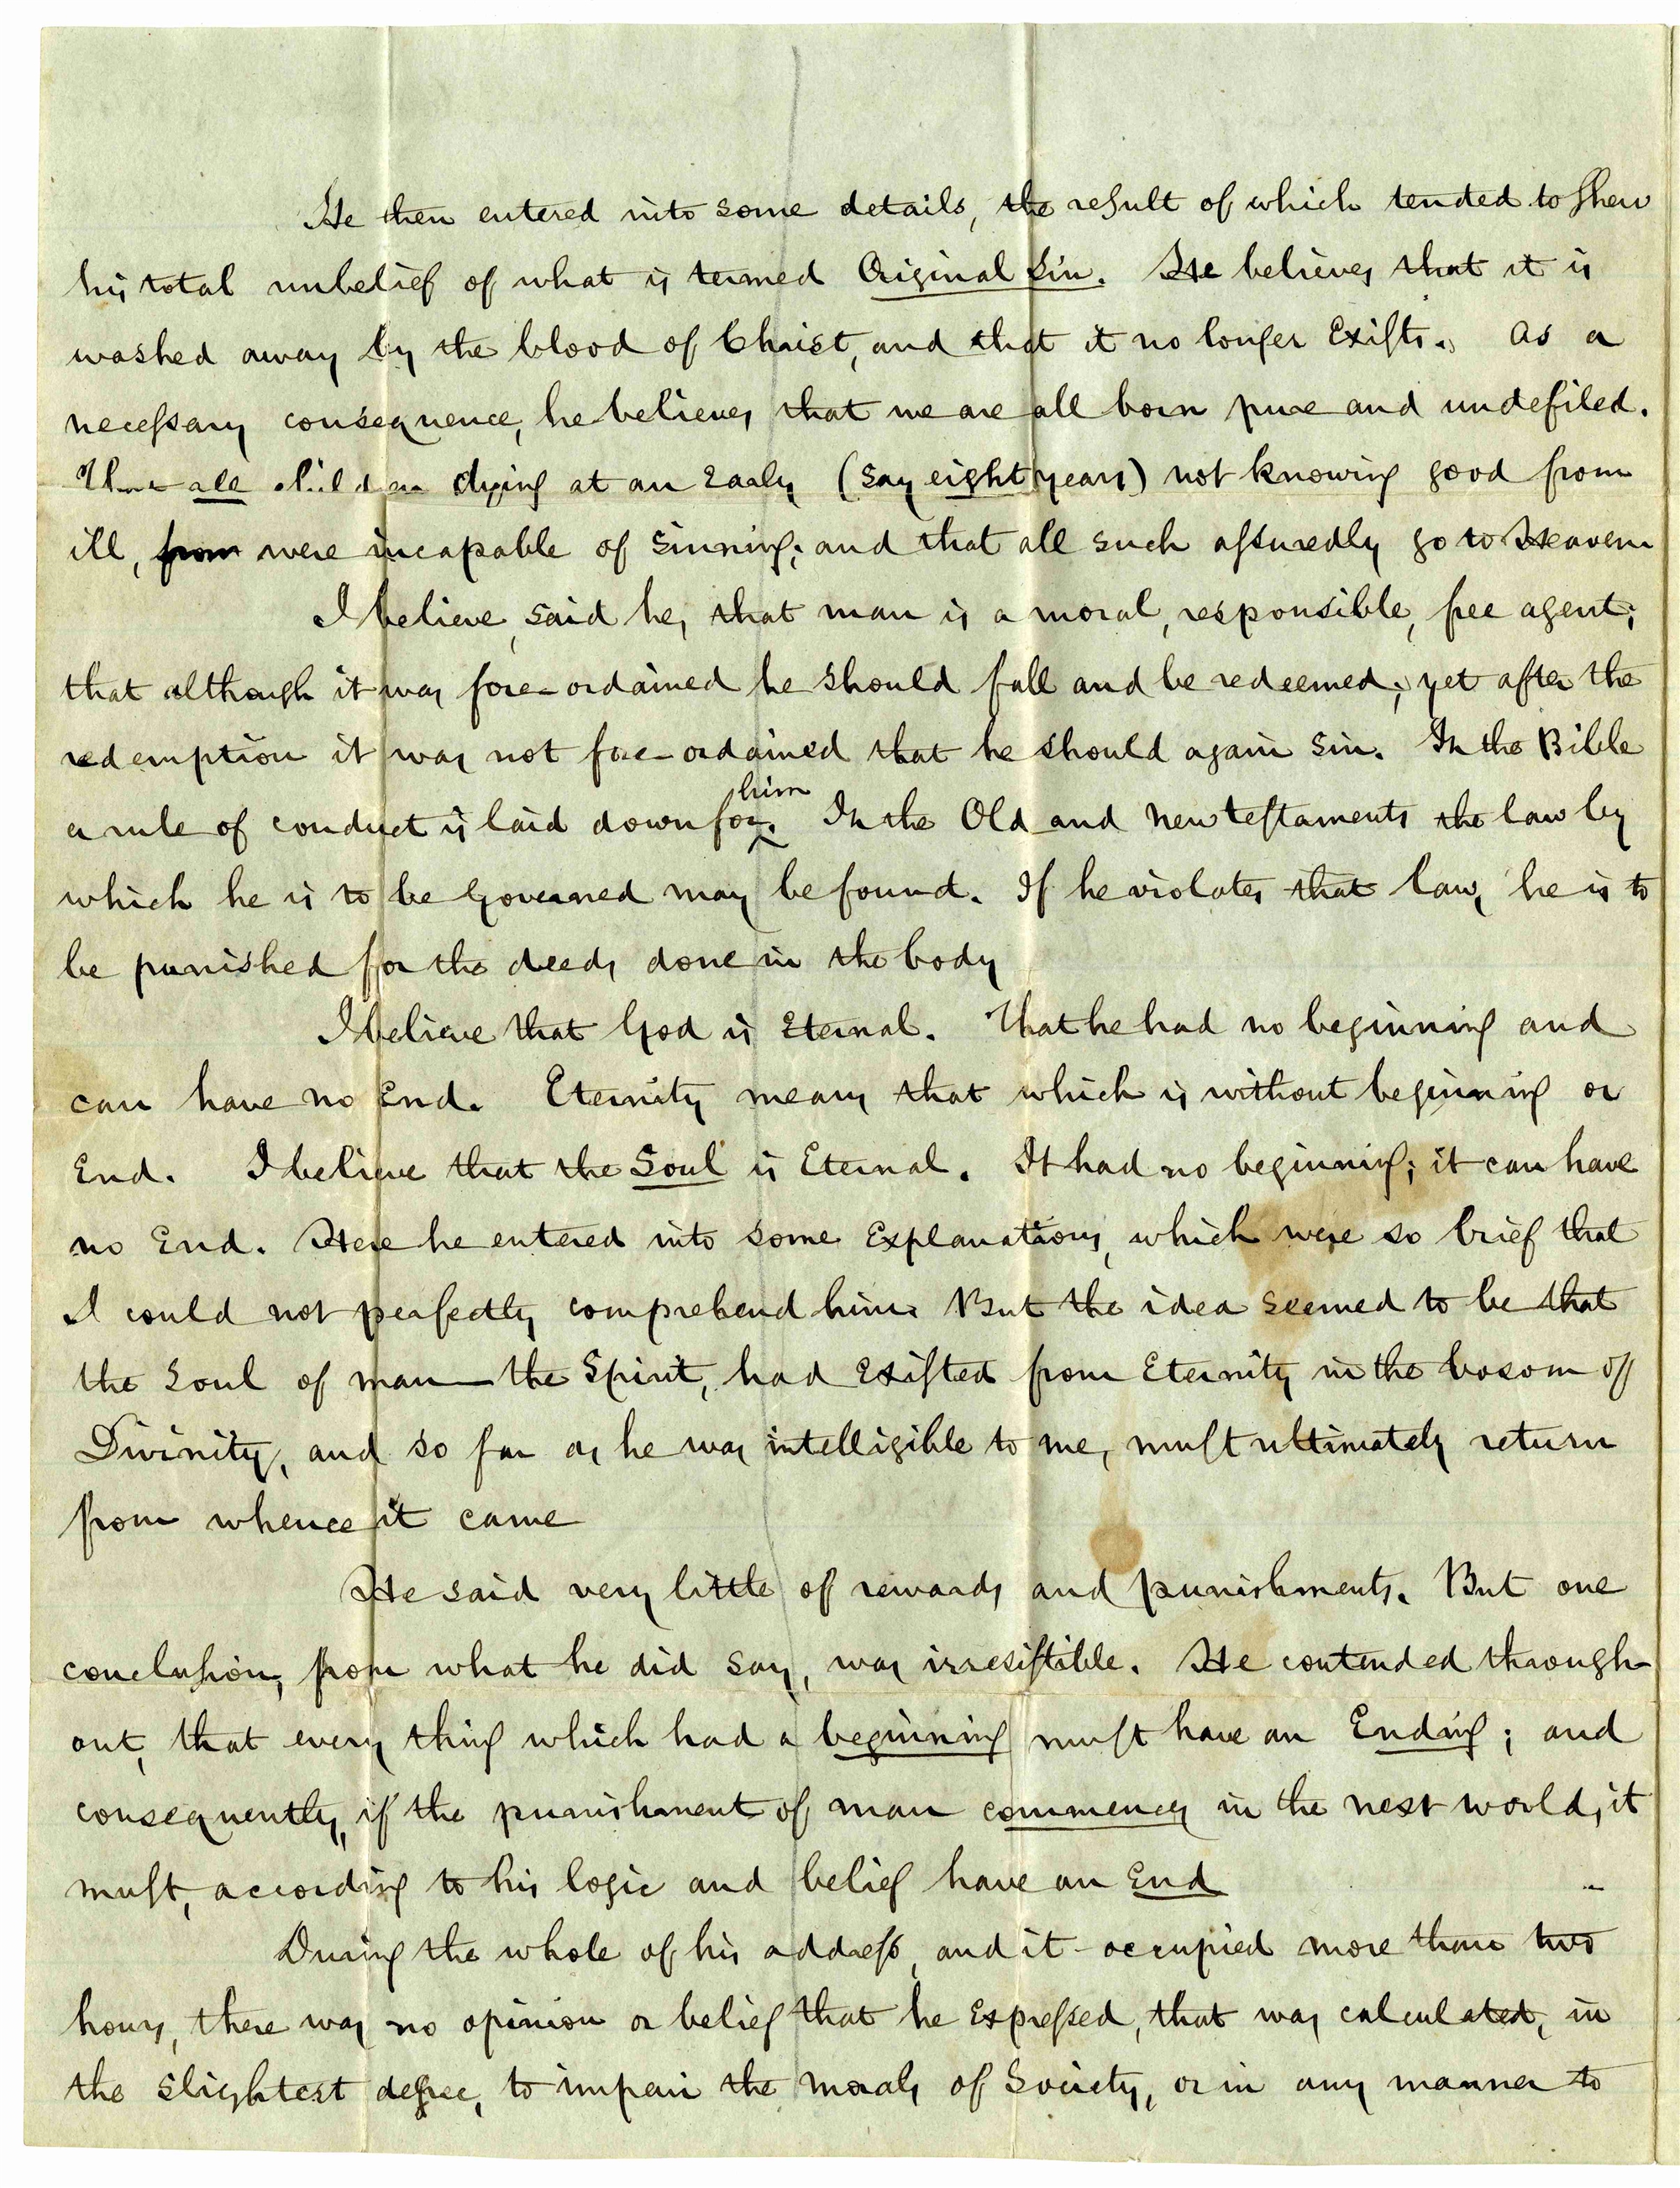 He then entered into some details, the result of which tended to shew
his total unbelief of what is termed Original Sin. He believes that it is
washed away by the blood of Christ, and that it no longer Exists. As a
necessary consequence, he believes that we are all born pure and undefiled.
That all children dying at an Early (say eight years) not knowing good from
ill, from were incapable of sinning; and that all such assuredly go to Heaven
I believe, said he, that man is a moral, responsible, free agent;
that although it was fore-ordained he should fall and be redeemed; yet after the
redemption it was not fore-ordained that he should again sin. In the Bible
him
a rule of conduct is laid down for. In the Old and New testaments the law by
which he is to be Governed may be found. If he violates that law, he is to
be punished for the deeds done in the body
I believe that God is Eternal. That he had no beginning and
can have no End. Eternity means that which is without beginning or
End. I believe that the Soul is Eternal. It had no beginning; it can have
no End. Here he entered into some Explanations, which were so brief that
I could not perfectly comprehend him. But the idea seemed to be that
the Soul of man—the Spirit, had Existed from Eternity in the bosom of
Divinity, and so far as he was intelligible to me, must ultimately return
from whence it came
He said very little of rewards and punishments. But one
conclusion, from what he did say, was irresistible. He contended through-
out, that every thing which had a beginning must have an Ending; and
consequently, if the punishment of man commences in the next world, it
must, according to his logic and belief have an End
During the whole of his address, and it occupied more than two
hours, there was no opinion or belief that he Expressed, that was calculated, in
the slightest degree, to impair the morals of Society, or in any manner to